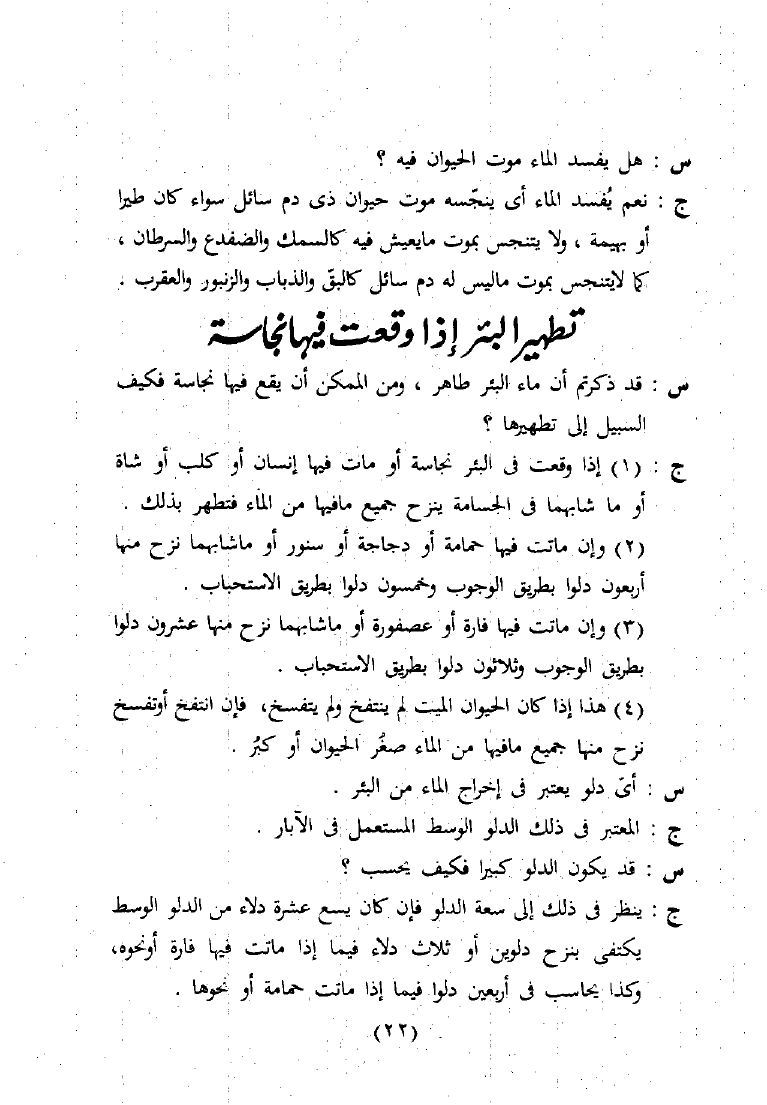 س : هل يفسد الماء موت الحيوان فيه ؟
ج : نعم يُفسد الماء أى ينجّسه موت حيوان ذى دم سائل سواء كان طيرا
أو بهيمة ، ولا يتنجس بموت مايعيش فيه كالسمك والضفدع والسرطان ،
كما لايتنجس بموت ماليس له دم سائل كالبقّ والذباب والزنبور والعقرب .
تطهير البئر إذا وقعت فيها نجاسة
س : قد ذكرتم أن ماء البئر طاهر ، ومن الممكن أن يقع فيها نجاسة فكيف
السبيل إلى تطهيرها ؟
ج : (١) إذا وقعت فى البئر نجاسة أو مات فيها إنسان أو كلب أو شاة
أو ما شابهما فى الجسامة ينزح جميع مافيها من الماء فتطهر بذلك .
(٢) وإن ماتت فيها حمامة أو دجاجة أو سنور أو ماشابهما نزح منها
أربعون دلوا بطريق الوجوب وخمسون دلوا بطريق الاستحباب .
(٣) وإن ماتت فيها فارة أو عصفورة أو ماشابهما نزح منها عشرون دلوا
بطريق الوجوب وثلاثون دلوا بطريق الاستحباب .
(٤) هذا إذا كان الحيوان الميت لم ينتفخ ولم يتفسخ، فإن انتفخ أوتفسخ
نزح منها جميع مافيها من الماء صغُر الحيوان أو كبُر .
س : أىّ دلو يعتبر فى إخراج الماء من البئر .
ج : المعتبر فى ذلك الدلو الوسط المستعمل فى الآبار .
س : قد يكون الدلو كبيرا فكيف يحسب ؟
ج : ينظر فى ذلك إلى سعة الدلو فإن كان يسع عشرة دلاء من الدلو الوسط
يكتفى بنزح دلوين أو ثلاث دلاء فيما إذا ماتت فيها فارة أونحوه،
وكذا يحاسب فى أربعين دلوا فيما إذا ماتت حمامة أو نحوها .
(٢٢)